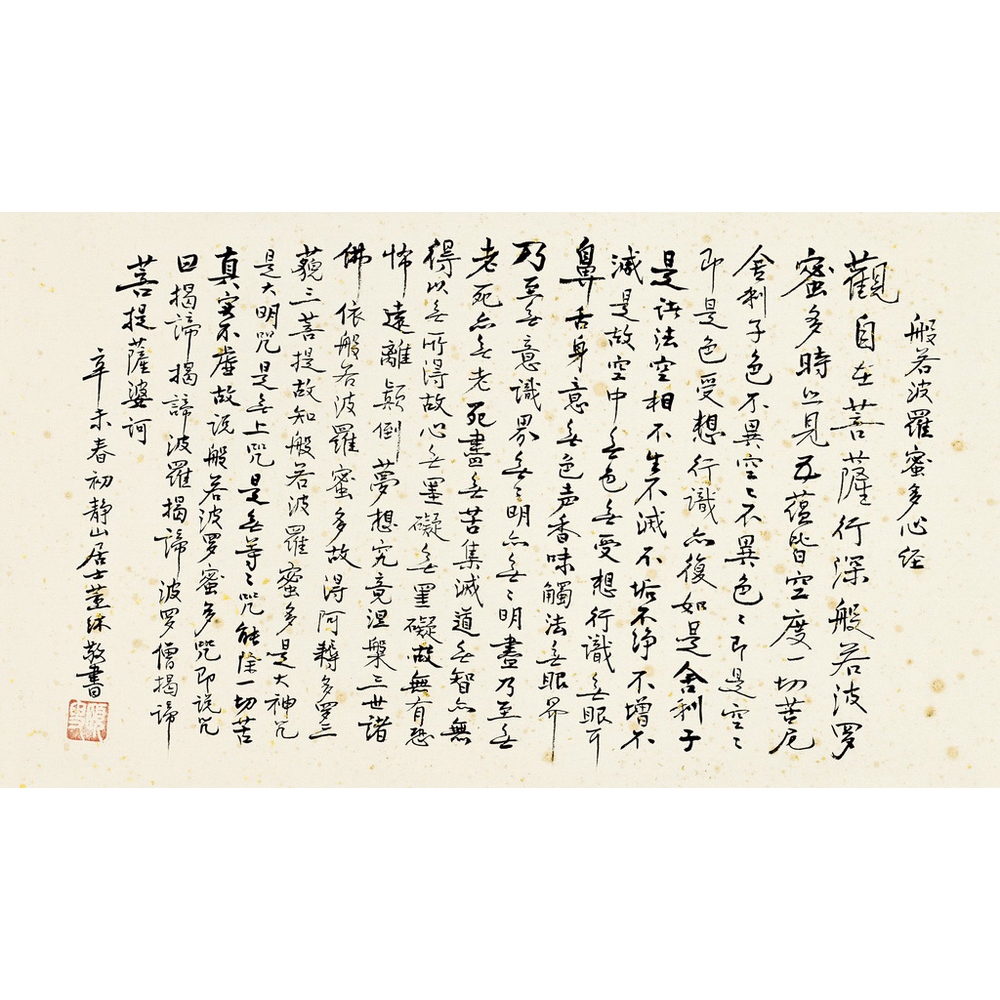 般若波羅蜜多心经
觀自在菩薩行深般若波罗
蜜多時照見五蘊皆空度一切苦厄
舍利子色不異空〻不異色〻即是空〻
即是色受想行識亦復如是舍利子
是諸法空相不生不滅不垢不净不增不
減是故空中無色無受想行識無眼耳
鼻舌身意無色声香味觸法無眼界
乃至無意識界無〻明亦無〻明盡乃至無
老死亦無老死盡無苦集滅道無智亦無
得以無所得故心無罣礙無罣礙故無有恐
怖遠離顛倒夢想究竟涅槃三世諸
佛依般若波羅蜜多故得阿耨多罗三
藐三菩提故知般若波羅蜜多是大神咒
是大明咒是無上咒是無等〻咒能除一切苦
真实不虚故说般若波罗蜜多咒即说咒
曰揭諦揭諦波羅揭諦波罗僧揭諦
菩提薩婆訶
辛未春初静山居士董 敬書